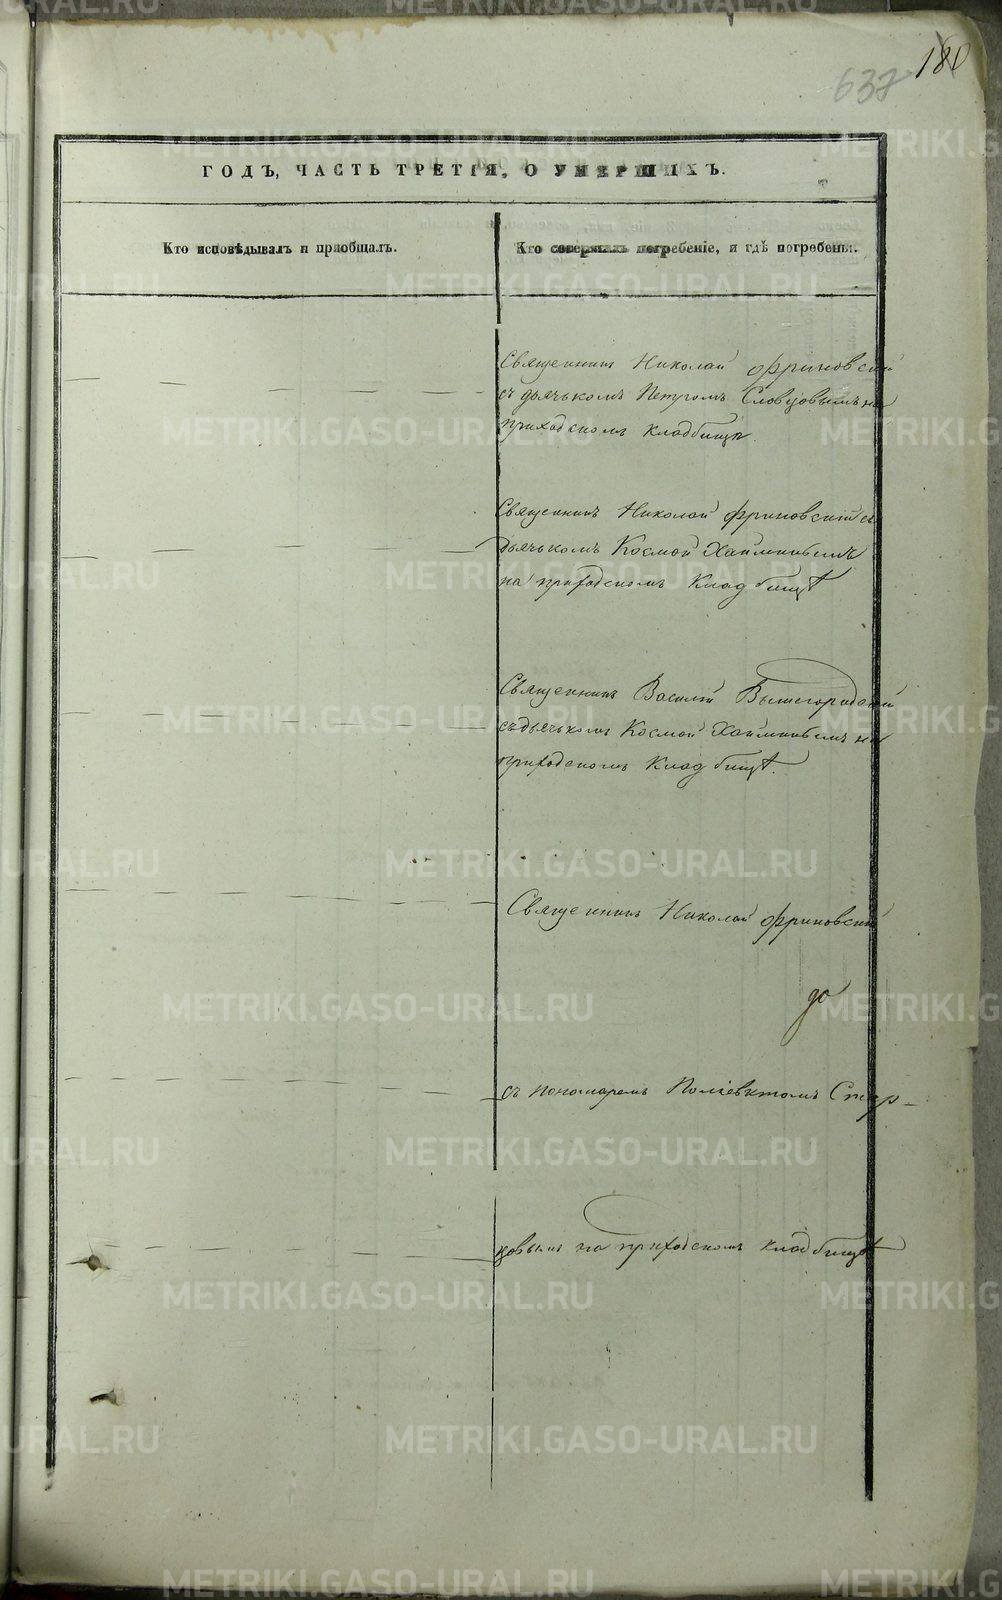 180
637
ГОДЪ, ЧАСТЬ ТРЕТІЯ, О УМЕРШИХЪ.
Кто исповѣдывалъ и пріобщалъ.
Кто совершалъ погребеніе, и гдѣ погребены.
Священникъ Николай Фриновскій
съ дьячькомъ Петромъ Словцовымъ на
приходскомъ кладбищѣ.
Священникъ Николай Фриновскій съ
дьячькомъ Космой Хайминымъ
на приходскомъ кладбищѣ
Священникъ Василій Вышегородскій
съ дьячькомъ Космой Хайминымъ на
приходскомъ кладбищѣ.
Священникъ Николай Фриновскій
до
съ пономаремъ Поліевктомъ Стар-
цовымъ на приходскомъ кладбищѣ
METRIKI.GASO-URAL.RU